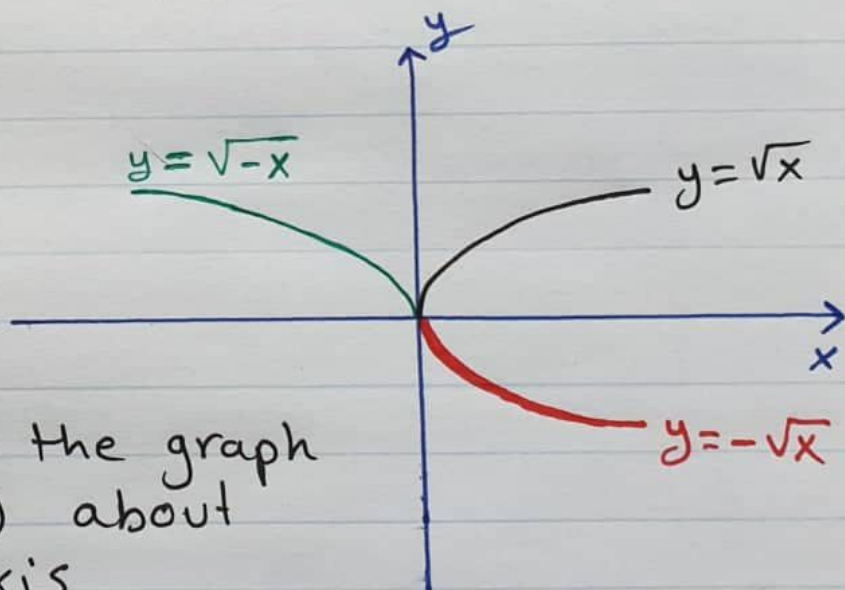 y
y = √-x
y = √x
x
y = -√x
the graph
) about